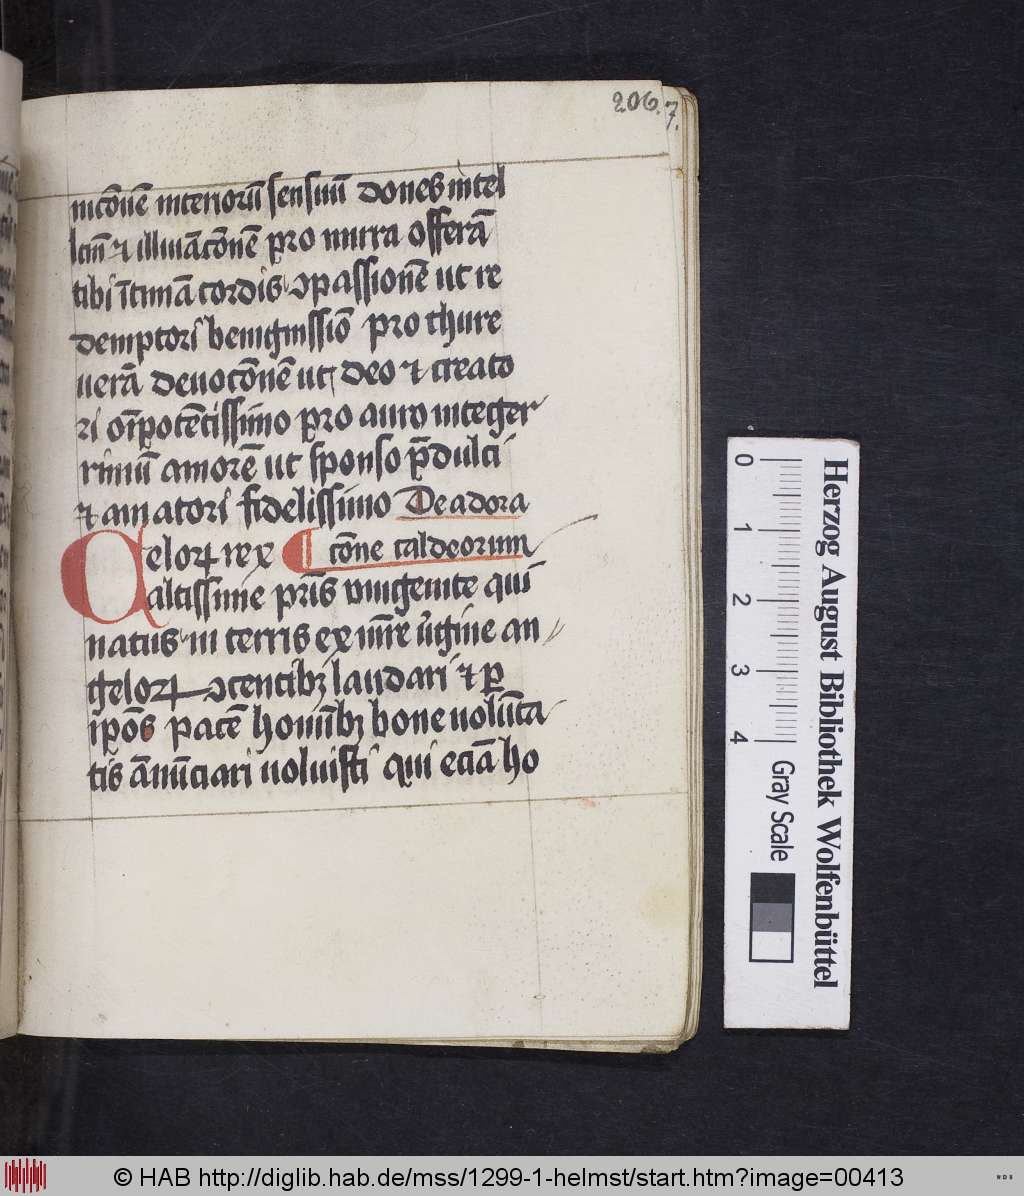 206.
7.
nicōnē interiorū sensuū dones intel
lctū ⁊ illuīacōnē pro mirra offerā
tibi ītimā cordis ꝯpassionē ut re
demptori benignissīo pro thure
uerā deuocōnē ut deo ⁊ creato
ri oīpotētissimo pro auro integer
rimū amorē ut sponso p̄dulci
⁊ amatori fidelissimo De adora
Celoꝝ rex cōne caldeorum
altissime pr̄is vnigenite qui
natus in terris ex mr̄e v̄gine an
geloꝝ ꝯcentibꝫ laudari ⁊ ꝑ
ip̄os pacē hoīnibꝫ bone volūta
tis ānūciari uoluisti qui eciā ho
Herzog August Bibliothek Wolfenbüttel
0 1 2 3 4
Gray Scale
© HAB http://diglib.hab.de/mss/1299-1-helmst/start.htm?image=00413